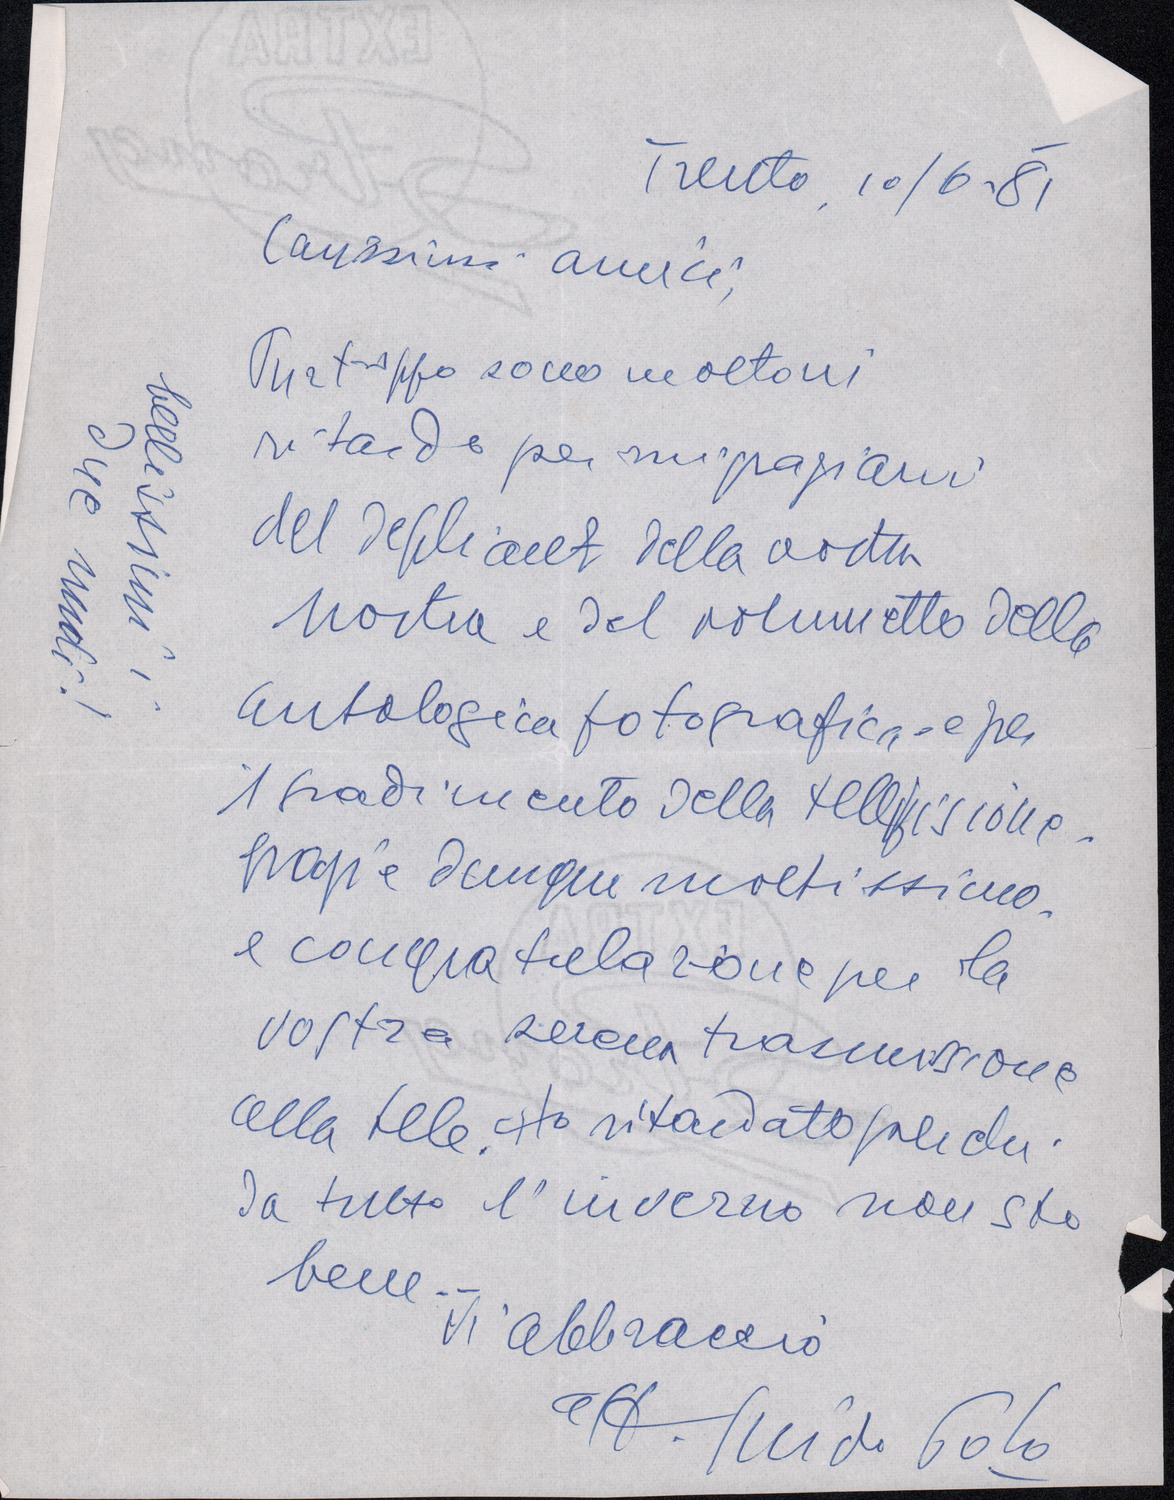 Trento, 10/6-81
Carissimi amici,
Purtroppo sono molto in
ritardo per ringraziarvi
del depliant della vostra
mostra e del volumetto della
antologica fotografica - e per
il gradimento della tellevisione.
Grazie dunque moltissimo.
e congratulazione per la
vostra serena trasmissione
alla tele. Ho ritardato perchè
da tutto l'inverno non sto
bene --
Vi abbraccio
aff. Guido Polo
bellissimi i
due nudi!
EXTRA
Strong
EXTRA
Strong